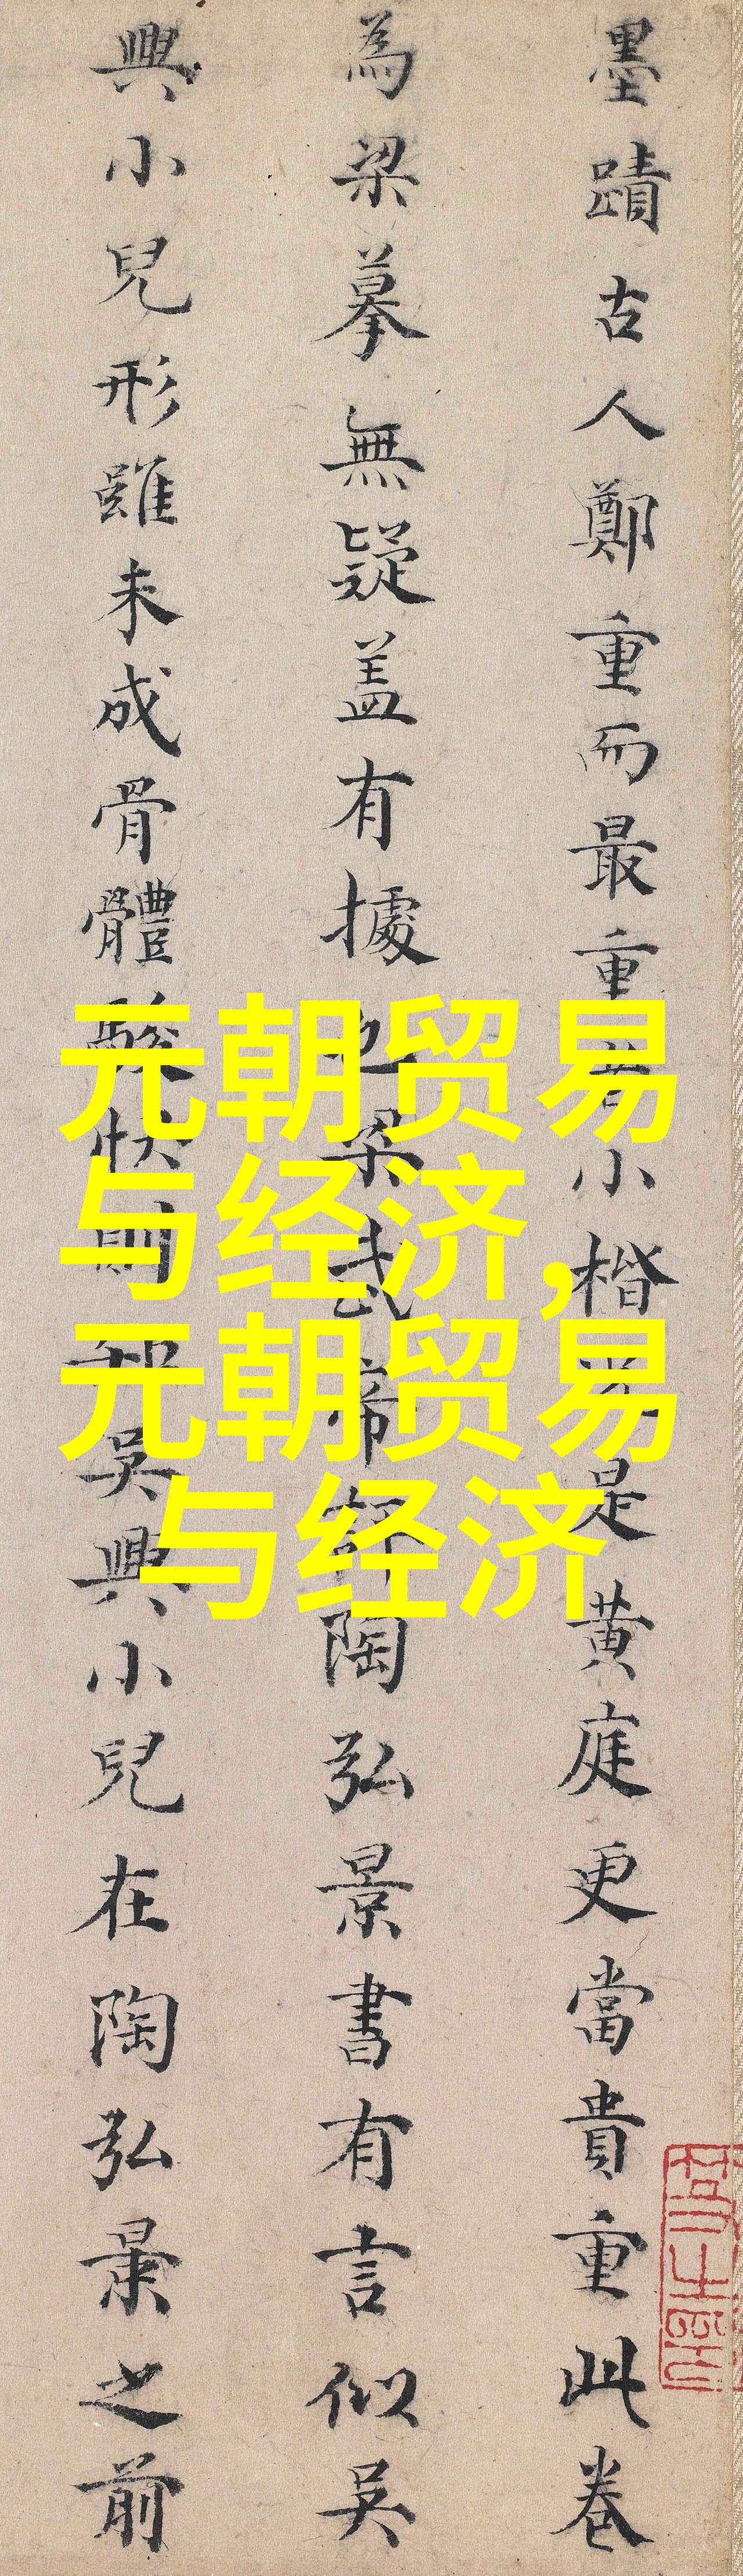 墨蹟古人鄭重而最重小楷是黃庭更當貴重此卷
為梁摹無疑盖有據也梁武帝評陶弘景書有言似吳
興小兒形雖未成骨體駿快則吳興小兒在陶弘景之前
元朝贸易
与经济,
元朝贸易
与经济